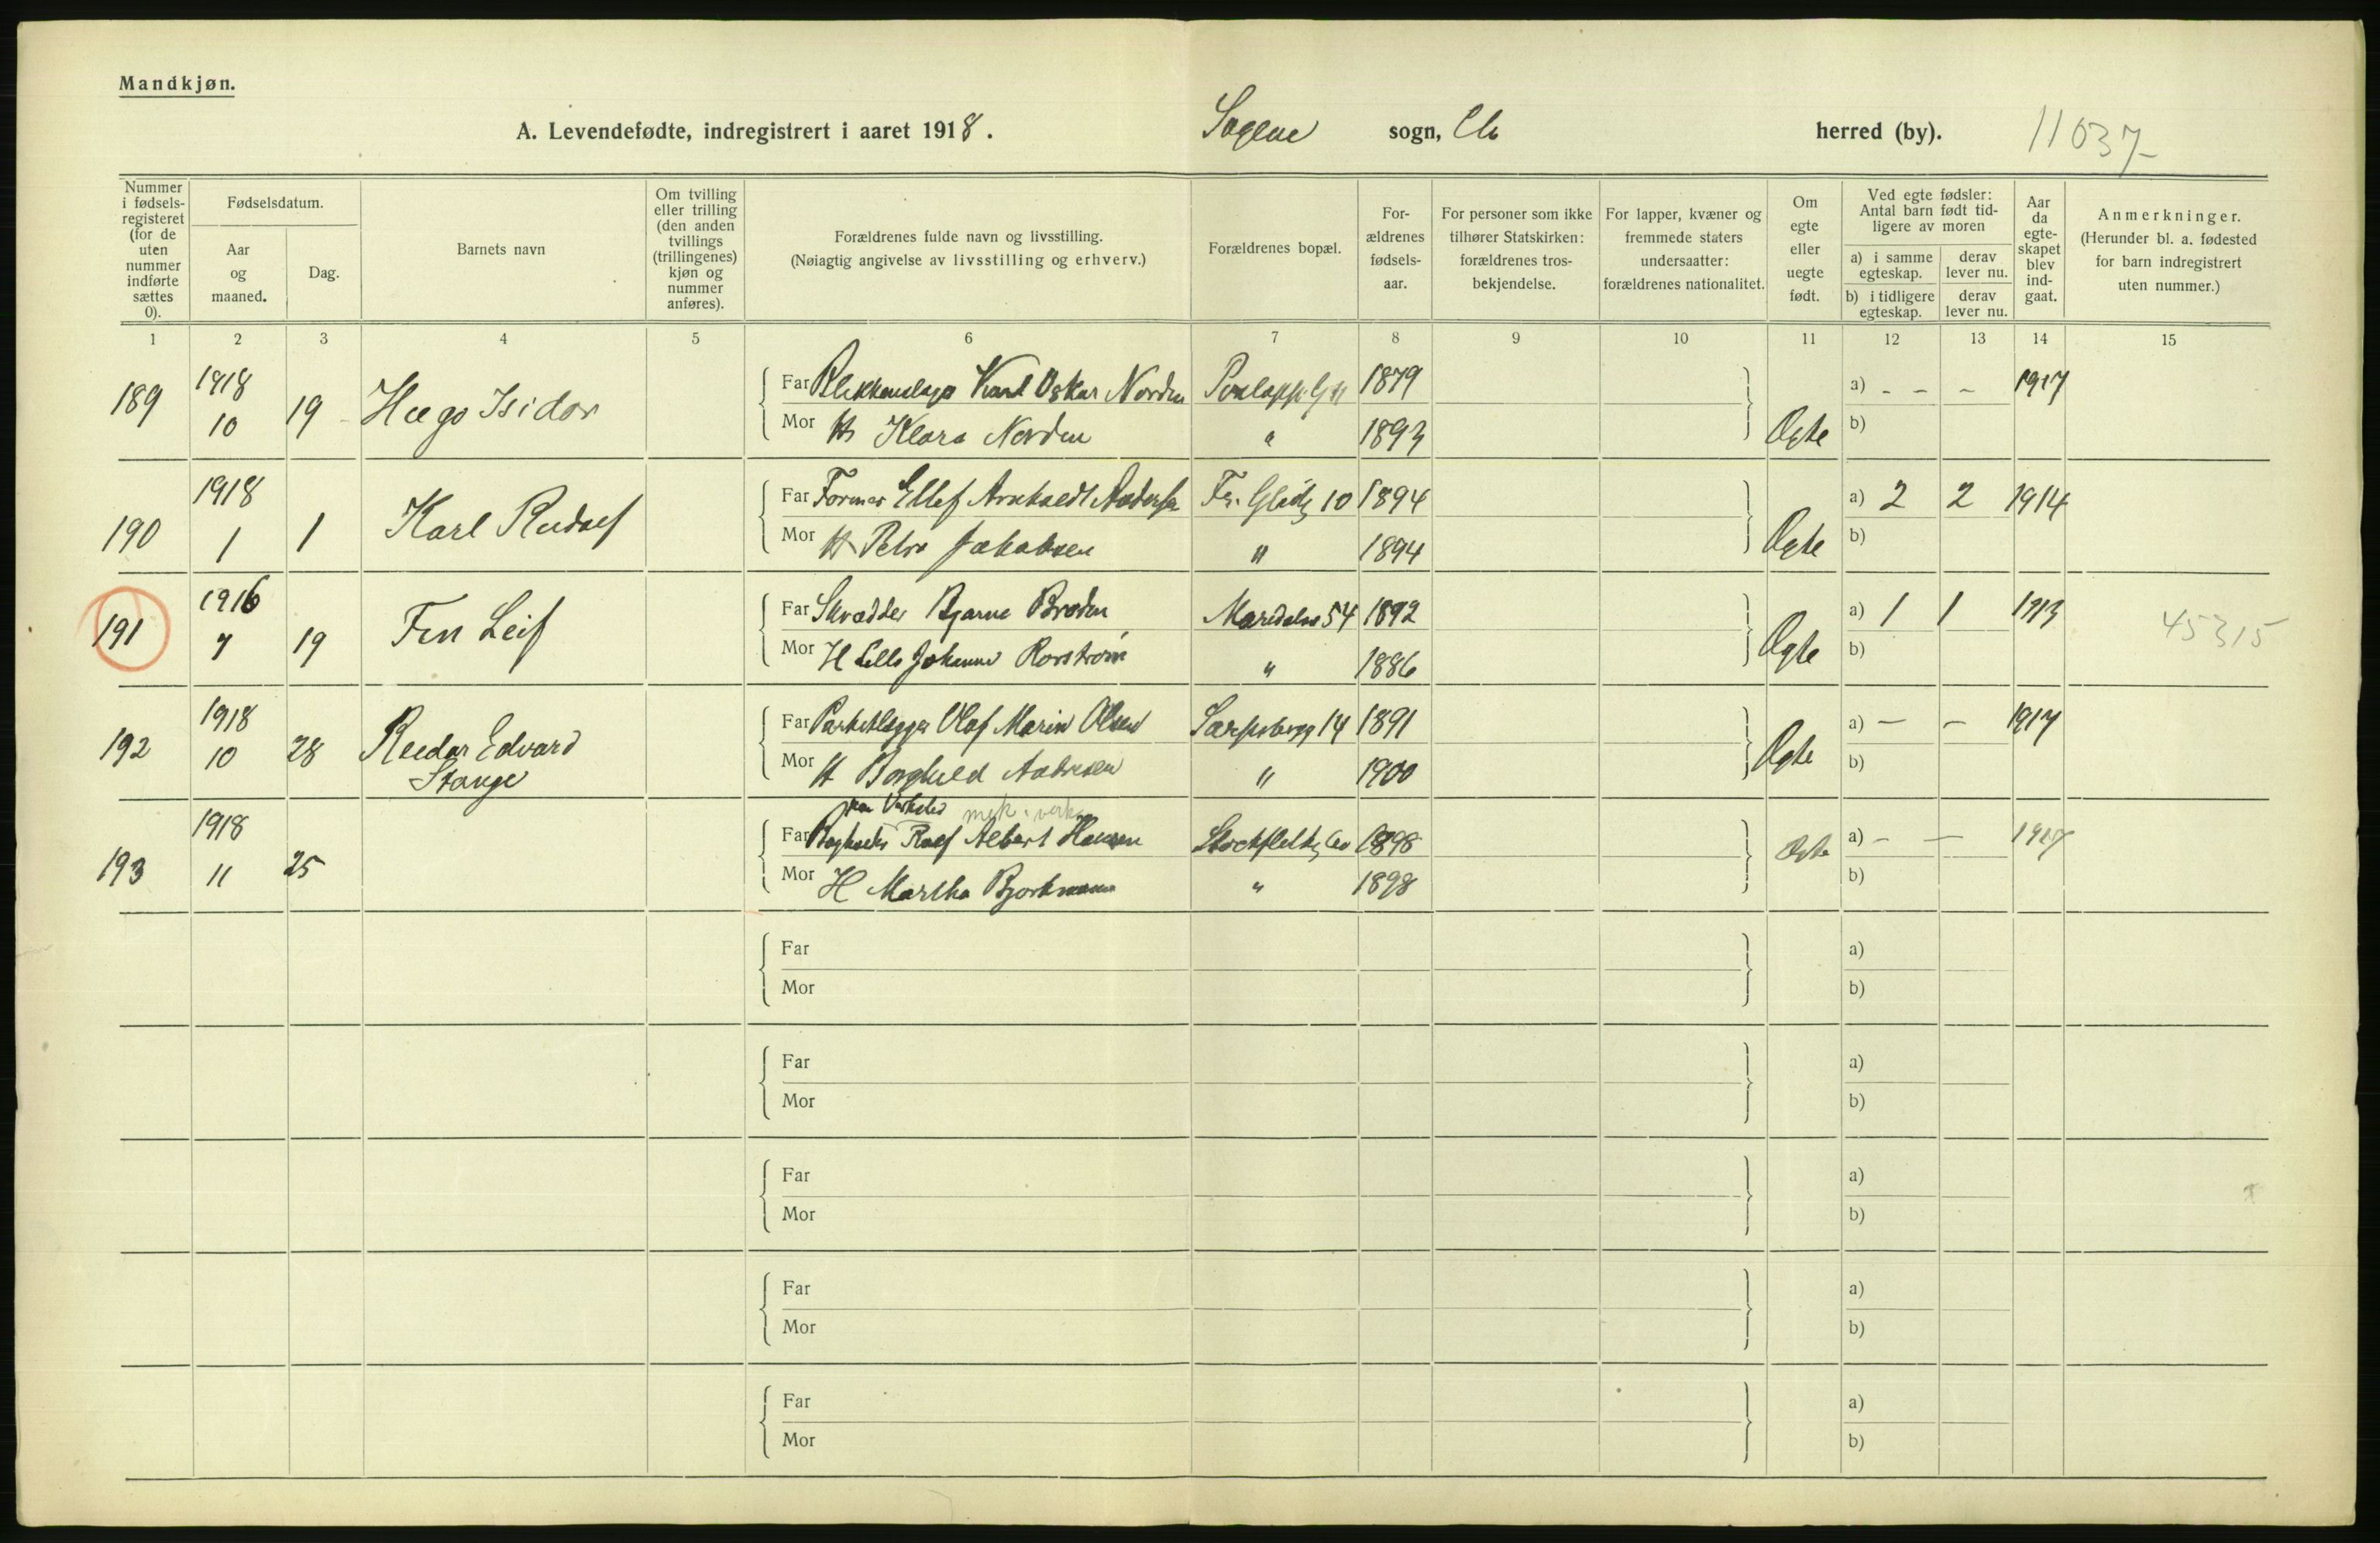 Mandkjøn.
A. Levendefødte, indregistrert i aaret 1918. Sagene sogn, Chr herred (by). 11037
Nummer i fødsels-registeret (for de uten nummer indførte sættes 0).
Fødselsdatum.
Aar og maaned.
Dag.
Barnets navn
Om tvilling eller trilling (den anden tvillings (trillingenes) kjøn og nummer anføres).
Forældrenes fulde navn og livsstilling. (Nøiagtig angivelse av livsstilling og erhverv.)
Forældrenes bopæl.
For-ældrenes fødsels-aar.
For personer som ikke tilhører Statskirken: forældrenes tros-bekjendelse.
For lapper, kvæner og fremmede staters undersaatter: forældrenes nationalitet.
Om egte eller uegte født.
Ved egte fødsler: Antal barn født tid-ligere av moren
a) i samme egteskap.
derav lever nu.
b) i tidligere egteskap.
derav lever nu.
Aar da egte-skapet blev ind-gaat.
Anmerkninger. (Herunder bl. a. fødested for barn indregistrert uten nummer.)
1 2 3 4 5 6 7 8 9 10 11 12 13 14 15
189 1918 10 19 Hugo Isidor
Far Blikkenslager Karl Oskar Norden 1879 a) - - - 1917
Mor H Klara Norden " 1893 Ogte b)
190 1918 1 1 Karl Rudolf
Far Former Ellef 10 1894 a) 2 2 1914
Mor H Petra Jakobsen " 1894 Ogte b)
191 1916 7 19 Fin Leif
Far Skrædder Bjarne Broden Maridalsv 54 1892 a) 1 1 1913 45315
Mor H Johanne Rorstrøm " 1886 Ogte b)
192 1918 10 28 Reidar Edvard
Stange
Far Parketlægger Olaf Marin Olsen Sarpsborgg 14 1891 a) - - 1917
Mor H Borghild Andresen " 1900 Ogte b)
mek. verk
193 1918 11 25
Far Rolf Albert Hansen 1898 a) - - 1917
Mor H Martha Bjorkmann " 1898 Ogte b)
Far a)
Mor b)
Far a)
Mor b)
Far a)
Mor b)
Far a)
Mor b)
Far a)
Mor b)